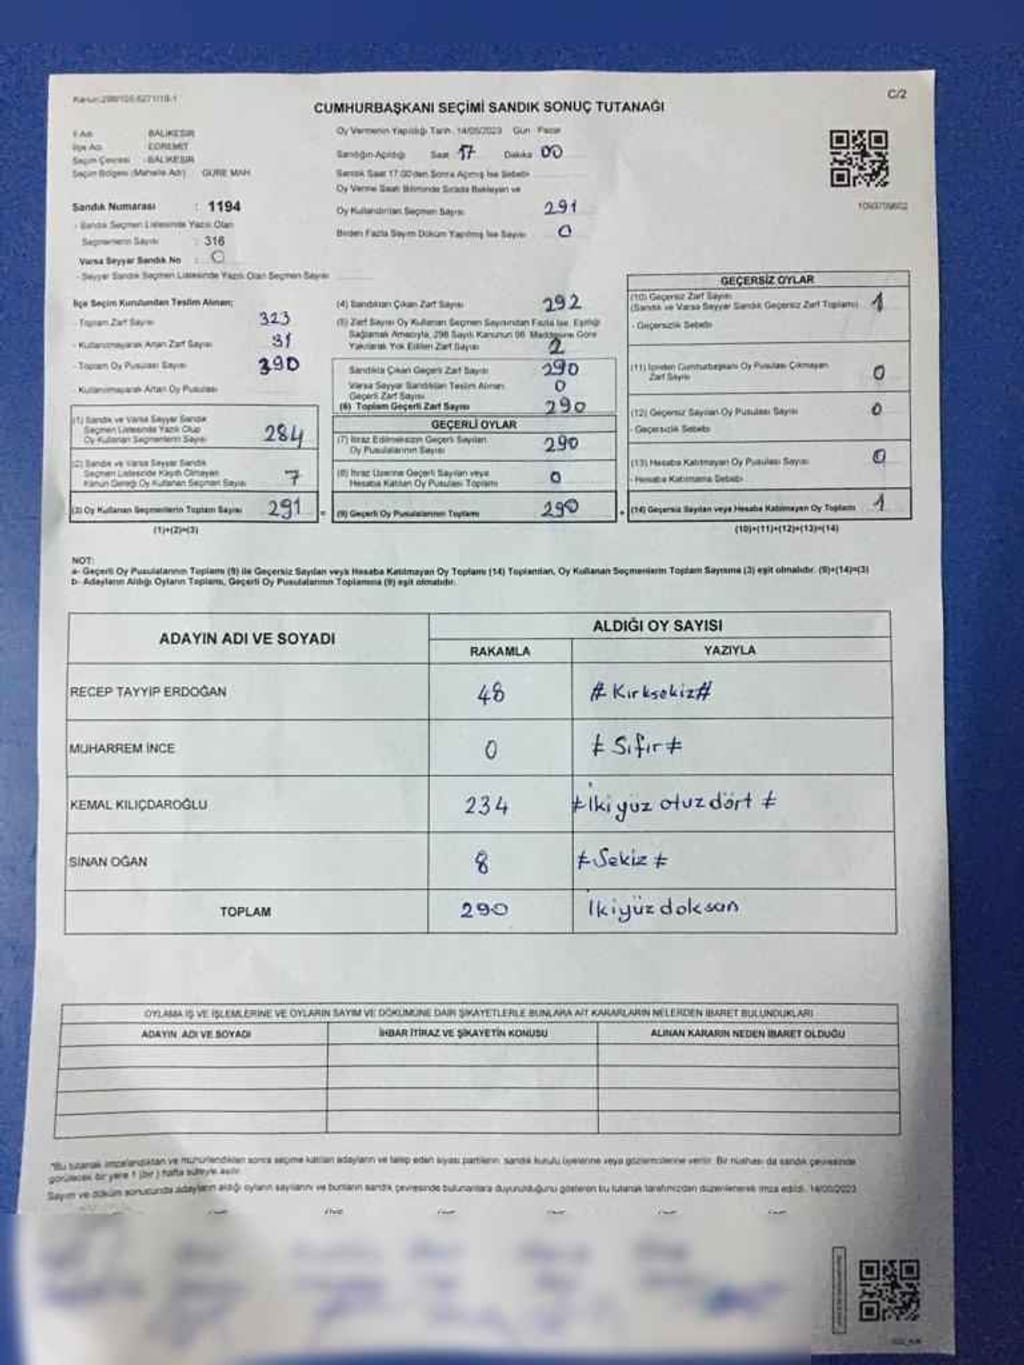 C/2
CUMHURBAŞKANI SEÇİMİ SANDIK SONUÇ TUTANAĞI
İl Adı BALIKESİR
İlçe Adı EDREMİT
Seçim Çevresi BALIKESİR
Seçim Bölgesi (Mahalle Adı) GÜRE MAH.
Sandık Numarası : 1194
- Sandık Seçmen Listesinde Yazılı Olan
Seçmenlerin Sayısı : 316
Varsa Seyyar Sandık No 0
- Seyyar Sandık Seçmen Listesinde Yazılı Olan Seçmen Sayısı
Oy Vermenin Yapıldığı Tarih 14/05/2023 Gün Pazar
Sandığın Açıldığı Saat 17 Dakika 00
Sandık Saat 17.00'den Sonra Açılmış İse Sebebi
Oy Verme Saati Bitiminde Sırada Bekleyen ve
Oy Kullandırılan Seçmen Sayısı 291
Birden Fazla Sayım Döküm Yapılmış İse Sayısı 0
İlçe Seçim Kurulundan Teslim Alınan;
- Toplam Zarf Sayısı 323
- Kullanılmayarak Artan Zarf Sayısı 31
- Toplam Oy Pusulası Sayısı 390
- Kullanılmayarak Artan Oy Pusulası
(1) Sandık ve Varsa Seyyar Sandık
Seçmen Listesinde Yazılı Olup
Oy Kullanan Seçmenlerin Sayısı 284
(2) Sandık ve Varsa Seyyar Sandık
Seçmen Listesinde Kayıtlı Olmayan
Kanun Gereği Oy Kullanan Seçmen Sayısı 7
(3) Oy Kullanan Seçmenlerin Toplam Sayısı 291 =
(1)+(2)=(3)
(4) Sandıktan Çıkan Zarf Sayısı 292
(5) Zarf Sayısı Oy Kullanan Seçmen Sayısından Fazla İse, Eşitliği
Sağlamak Amacıyla, 298 Sayılı Kanunun 98. Maddesine Göre
Yakılarak Yok Edilen Zarf Sayısı 2
Sandıkta Çıkan Geçerli Zarf Sayısı 290
Varsa Seyyar Sandıktan Teslim Alınan
Geçerli Zarf Sayısı 0
(6) Toplam Geçerli Zarf Sayısı 290
GEÇERLİ OYLAR
(7) İtiraz Edilmeksizin Geçerli Sayılan
Oy Pusulalarının Sayısı 290
(8) İtiraz Üzerine Geçerli Sayılan veya
Hesaba Katılan Oy Pusulası Toplamı 0
(9) Geçerli Oy Pusulalarının Toplamı 290 +
GEÇERSİZ OYLAR
(10) Geçersiz Zarf Sayısı
(Sandık ve Varsa Seyyar Sandık Geçersiz Zarf Toplamı) 1
- Geçersizlik Sebebi
(11) İçinden Cumhurbaşkanı Oy Pusulası Çıkmayan
Zarf Sayısı 0
(12) Geçersiz Sayılan Oy Pusulası Sayısı 0
- Geçersizlik Sebebi
(13) Hesaba Katılmayan Oy Pusulası Sayısı 0
- Hesaba Katılmama Sebebi
(14) Geçersiz Sayılan veya Hesaba Katılmayan Oy Toplamı 1
(10)+(11)+(12)+(13)=(14)
NOT:
a- Geçerli Oy Pusulalarının Toplamı (9) ile Geçersiz Sayılan veya Hesaba Katılmayan Oy Toplamı (14) Toplamları, Oy Kullanan Seçmenlerin Toplam Sayısına (3) eşit olmalıdır. (9)+(14)=(3)
b- Adayların Aldığı Oyların Toplamı, Geçerli Oy Pusulalarının Toplamına (9) eşit olmalıdır.
ADAYIN ADI VE SOYADI ALDIĞI OY SAYISI
RAKAMLA YAZIYLA
RECEP TAYYİP ERDOĞAN 48 # Kırksekiz #
MUHARREM İNCE 0 ≠ Sıfır ≠
KEMAL KILIÇDAROĞLU 234 ≠ İkiyüz otuz dört ≠
SİNAN OĞAN 8 ≠ Sekiz ≠
TOPLAM 290 İkiyüz doksan
OYLAMA İŞ VE İŞLEMLERİNE VE OYLARIN SAYIM VE DÖKÜMÜNE DAİR ŞİKAYETLERLE BUNLARA AİT KARARLARIN NELERDEN İBARET BULUNDUKLARI
ADAYIN ADI VE SOYADI İHBAR İTİRAZ VE ŞİKAYETİN KONUSU ALINAN KARARIN NEDEN İBARET OLDUĞU
"Bu tutanak imzalandıktan ve mühürlendikten sonra seçime katılan adayların ve talep eden siyasi partilerin sandık kurulu üyelerine veya gözlemcilerine verilir. Bir nüshası da sandık çevresinde
görülecek bir yere 1 (bir) hafta süreyle asılır.
Sayım ve döküm sonucunda adayların aldığı oyların sayılarını ve bunların sandık çevresinde bulunanlara duyurulduğunu gösteren bu tutanak tarafımızdan düzenlenerek imza edildi. 14/05/2023